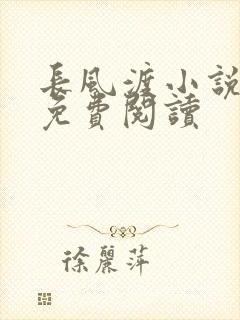 長風渡小說
免費閱讀
徐麗萍